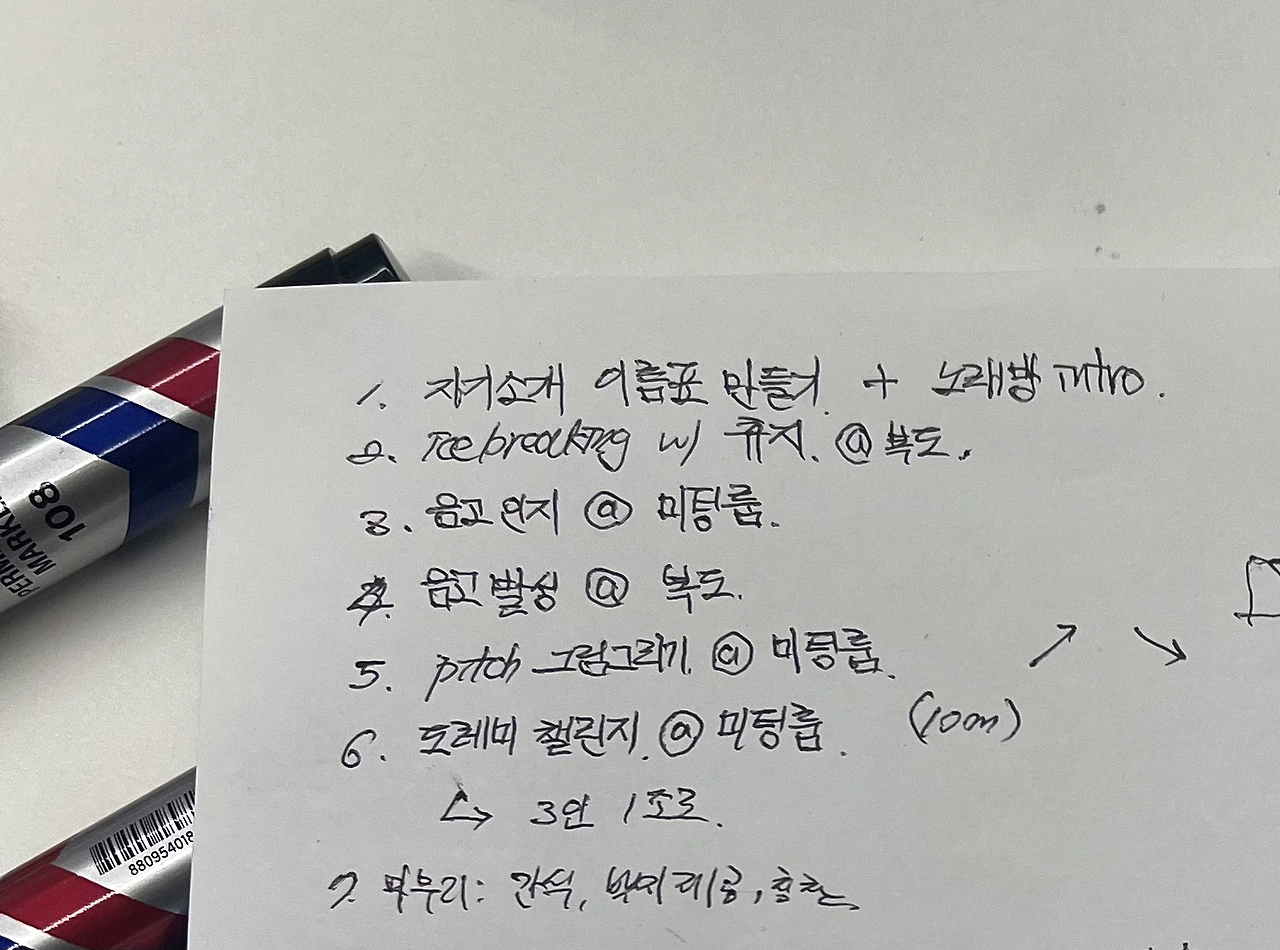 1. 자기소개 이름표 만들기 + 노래방 intro.
2. Icebreaking w/ 휴지. @복도.
3. 음고인지 @ 미팅룸.
4. 음고발성 @ 복도.
5. pitch 그림그리기. @ 미팅룸.
6. 도레미 챌린지. @ 미팅룸. (10m)
↳ 3인 1조로.
7. 마무리: 간식,
108
PERM
MARKE
880954018